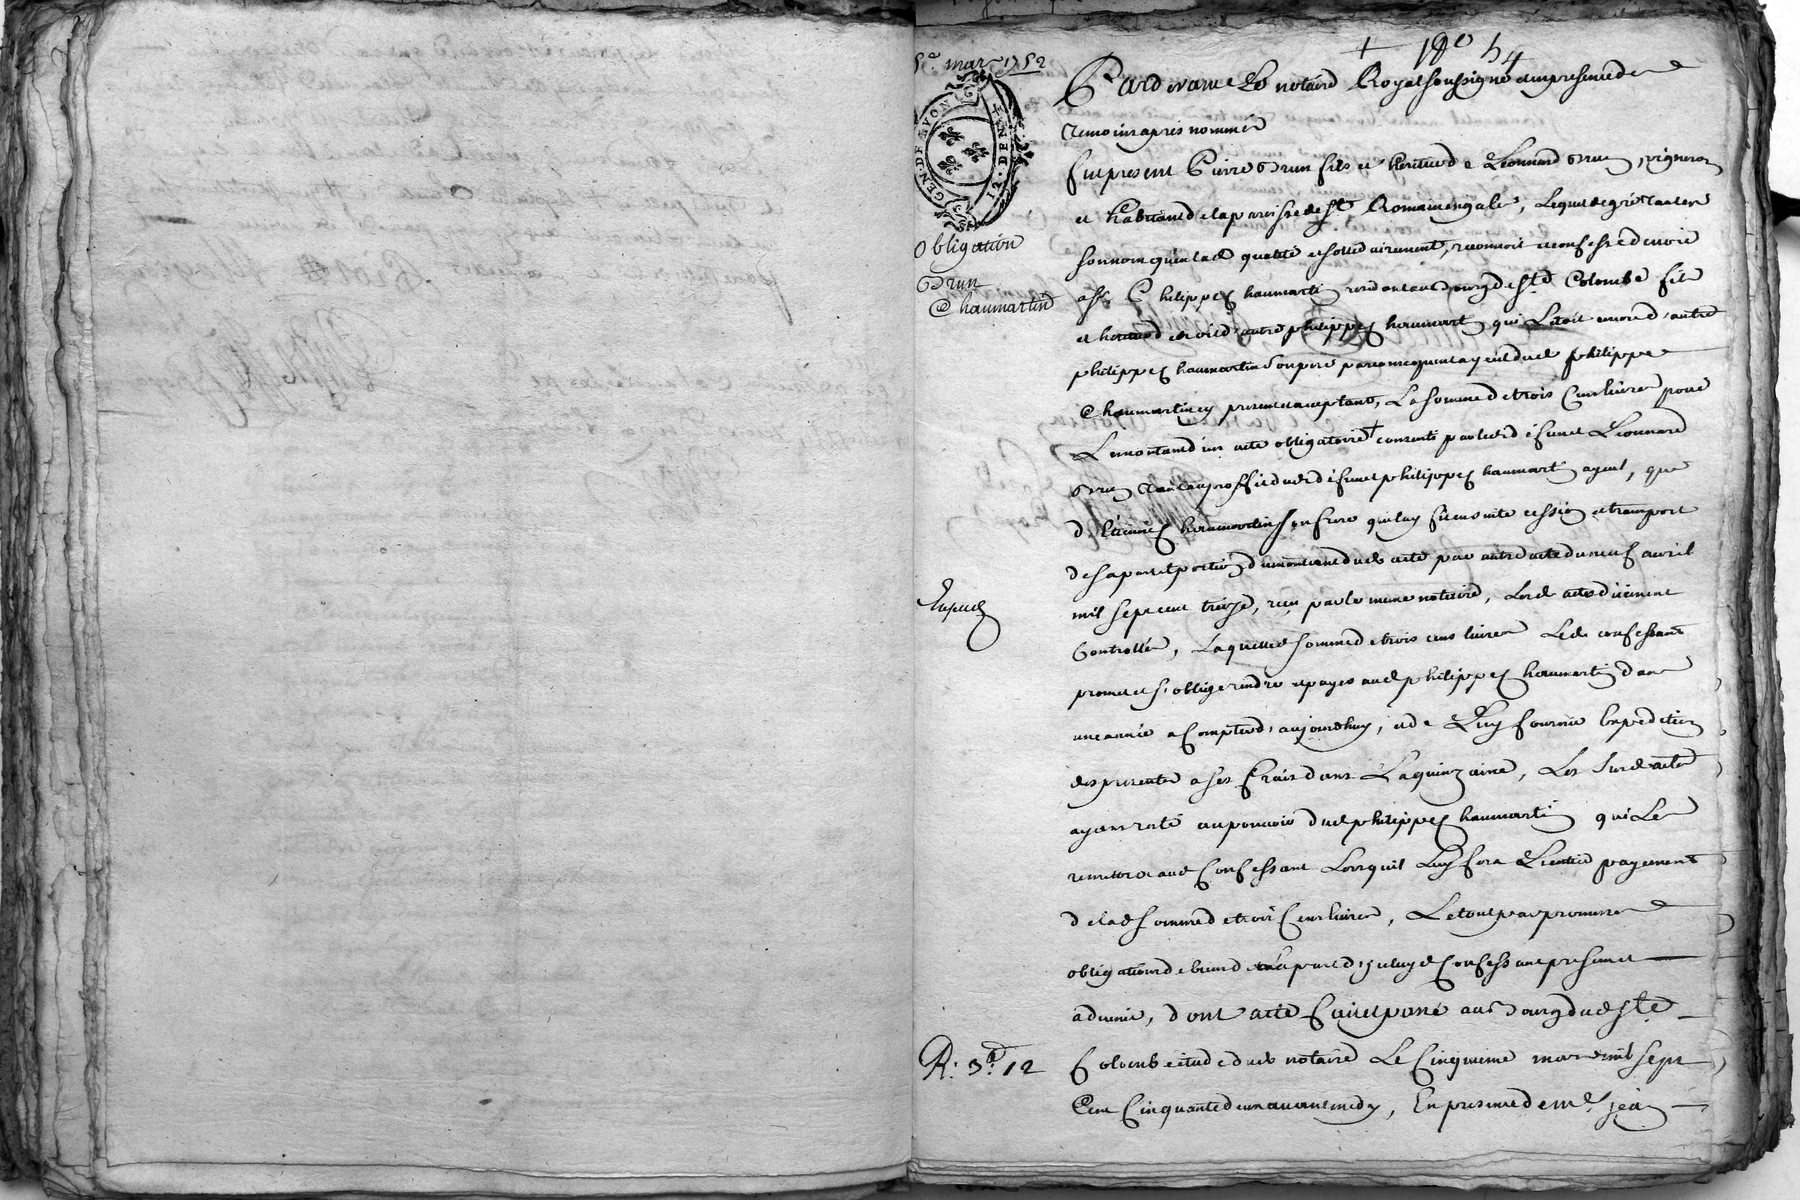 5e mars 1752
+ No 54
GEN. DE LYON
12. DEN.
Obligation
Brun
Chaumartin
Expedie
R: 3# 12
Pardevant Le notaire Royal soussigné en presence des
temoins apres nommés
fut present Pierre Brun fils et heritier de Leonnard Brun, vigneron
et habitant de la paroisse de St Romain en gale, Lequel de gré tant en
son nom qu'en lad qualité et solidairement, reconnoit et confesse devoir
a Sr Philippe Chaumartin residant au bourg de Ste Colombe fils
et heritier de autre philippe Chaumartin qui Letoit encore d'autre
philippe Chaumartin son pere par consequent ayeul dud philippe
Chaumartin cy present acceptant, La somme de trois Cens livres pour
Le montant d'un acte obligatoire + consenti par led défunt Leonnard
Brun tant au proffit dud défunt philippe Chaumartin ayeul, que
d'Etienne Chaumartin son frere qui luy fit ensuite cession et transport
de sa part et portion du montant dud acte par autre acte du neuf avril
mil sept cent treize, reçu par le meme notaire, Lesd actes düement
Controllés, Laquelle somme de trois cens livres Led confessant
promet et s'oblige rendre et payer aud philippe Chaumartin dans
une année a Compter d'aujourdhuy, et de Luy fournir Expedition
des presentes a ses frais dans La quinzaine, Les susd actes
ayant resté au pouvoir dud philippe Chaumartin qui Les
remettra aud Confessant Lorsquil Luy fera L'entier payement
de lad somme de trois Cens livres, Le tout par promesses
obligation de biens de la part d'iceluy Confessant presents
a venir, dont acte fait et passé au bourg dud Ste
Colombe etude dud notaire Le Cinquieme mars mil sept
Cent Cinquante deux avant midy, En presence de me jean